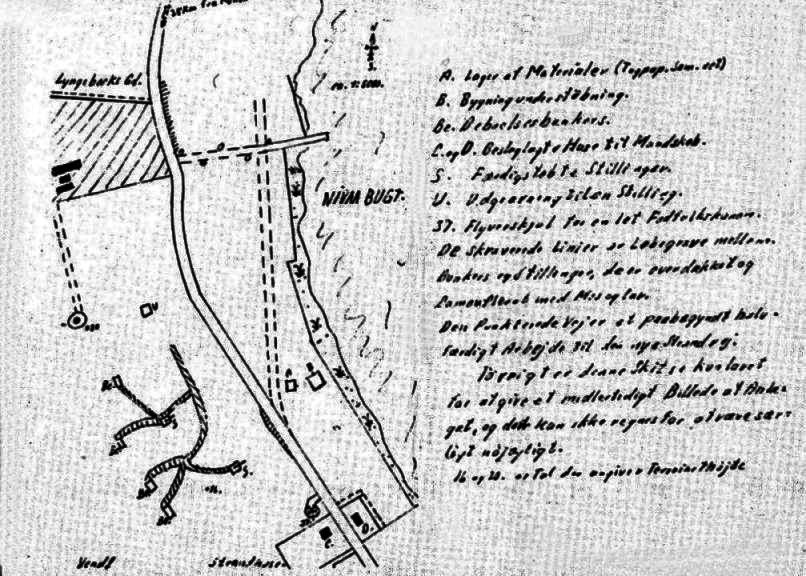 Lyngebæks Gd.
NIVAA BUGT.
A. Lager af Materialer (Tagpap. Sem. etc)
B. Bygning under støbning.
Be. Beboelsesbunkers.
C. og D. Beslaglagte Huse til Mandskab.
S. Færdigstøbte Stillinger.
U. Udgravning til en Stilling.
37. Flyverskjul for en let
De skraverede Linier er Løbegrave mellem
Bunkers og Stillinger, de er overdækket og
med
Den Punkterede Vej er et paabegyndt halv-
færdigt Arbejde til den nye Strandvej.
Iøvrigt er denne Skitse kun lavet
for at give et midlertidigt Billede af Anlæ-
get, og dette kan ikke regnes for at være sær-
ligt nøjagtigt.
16 og 18. er Tal der angiver Terrainet Højde
B
A
U
Be
Be
S.
S.
Be
Be
C.
D.